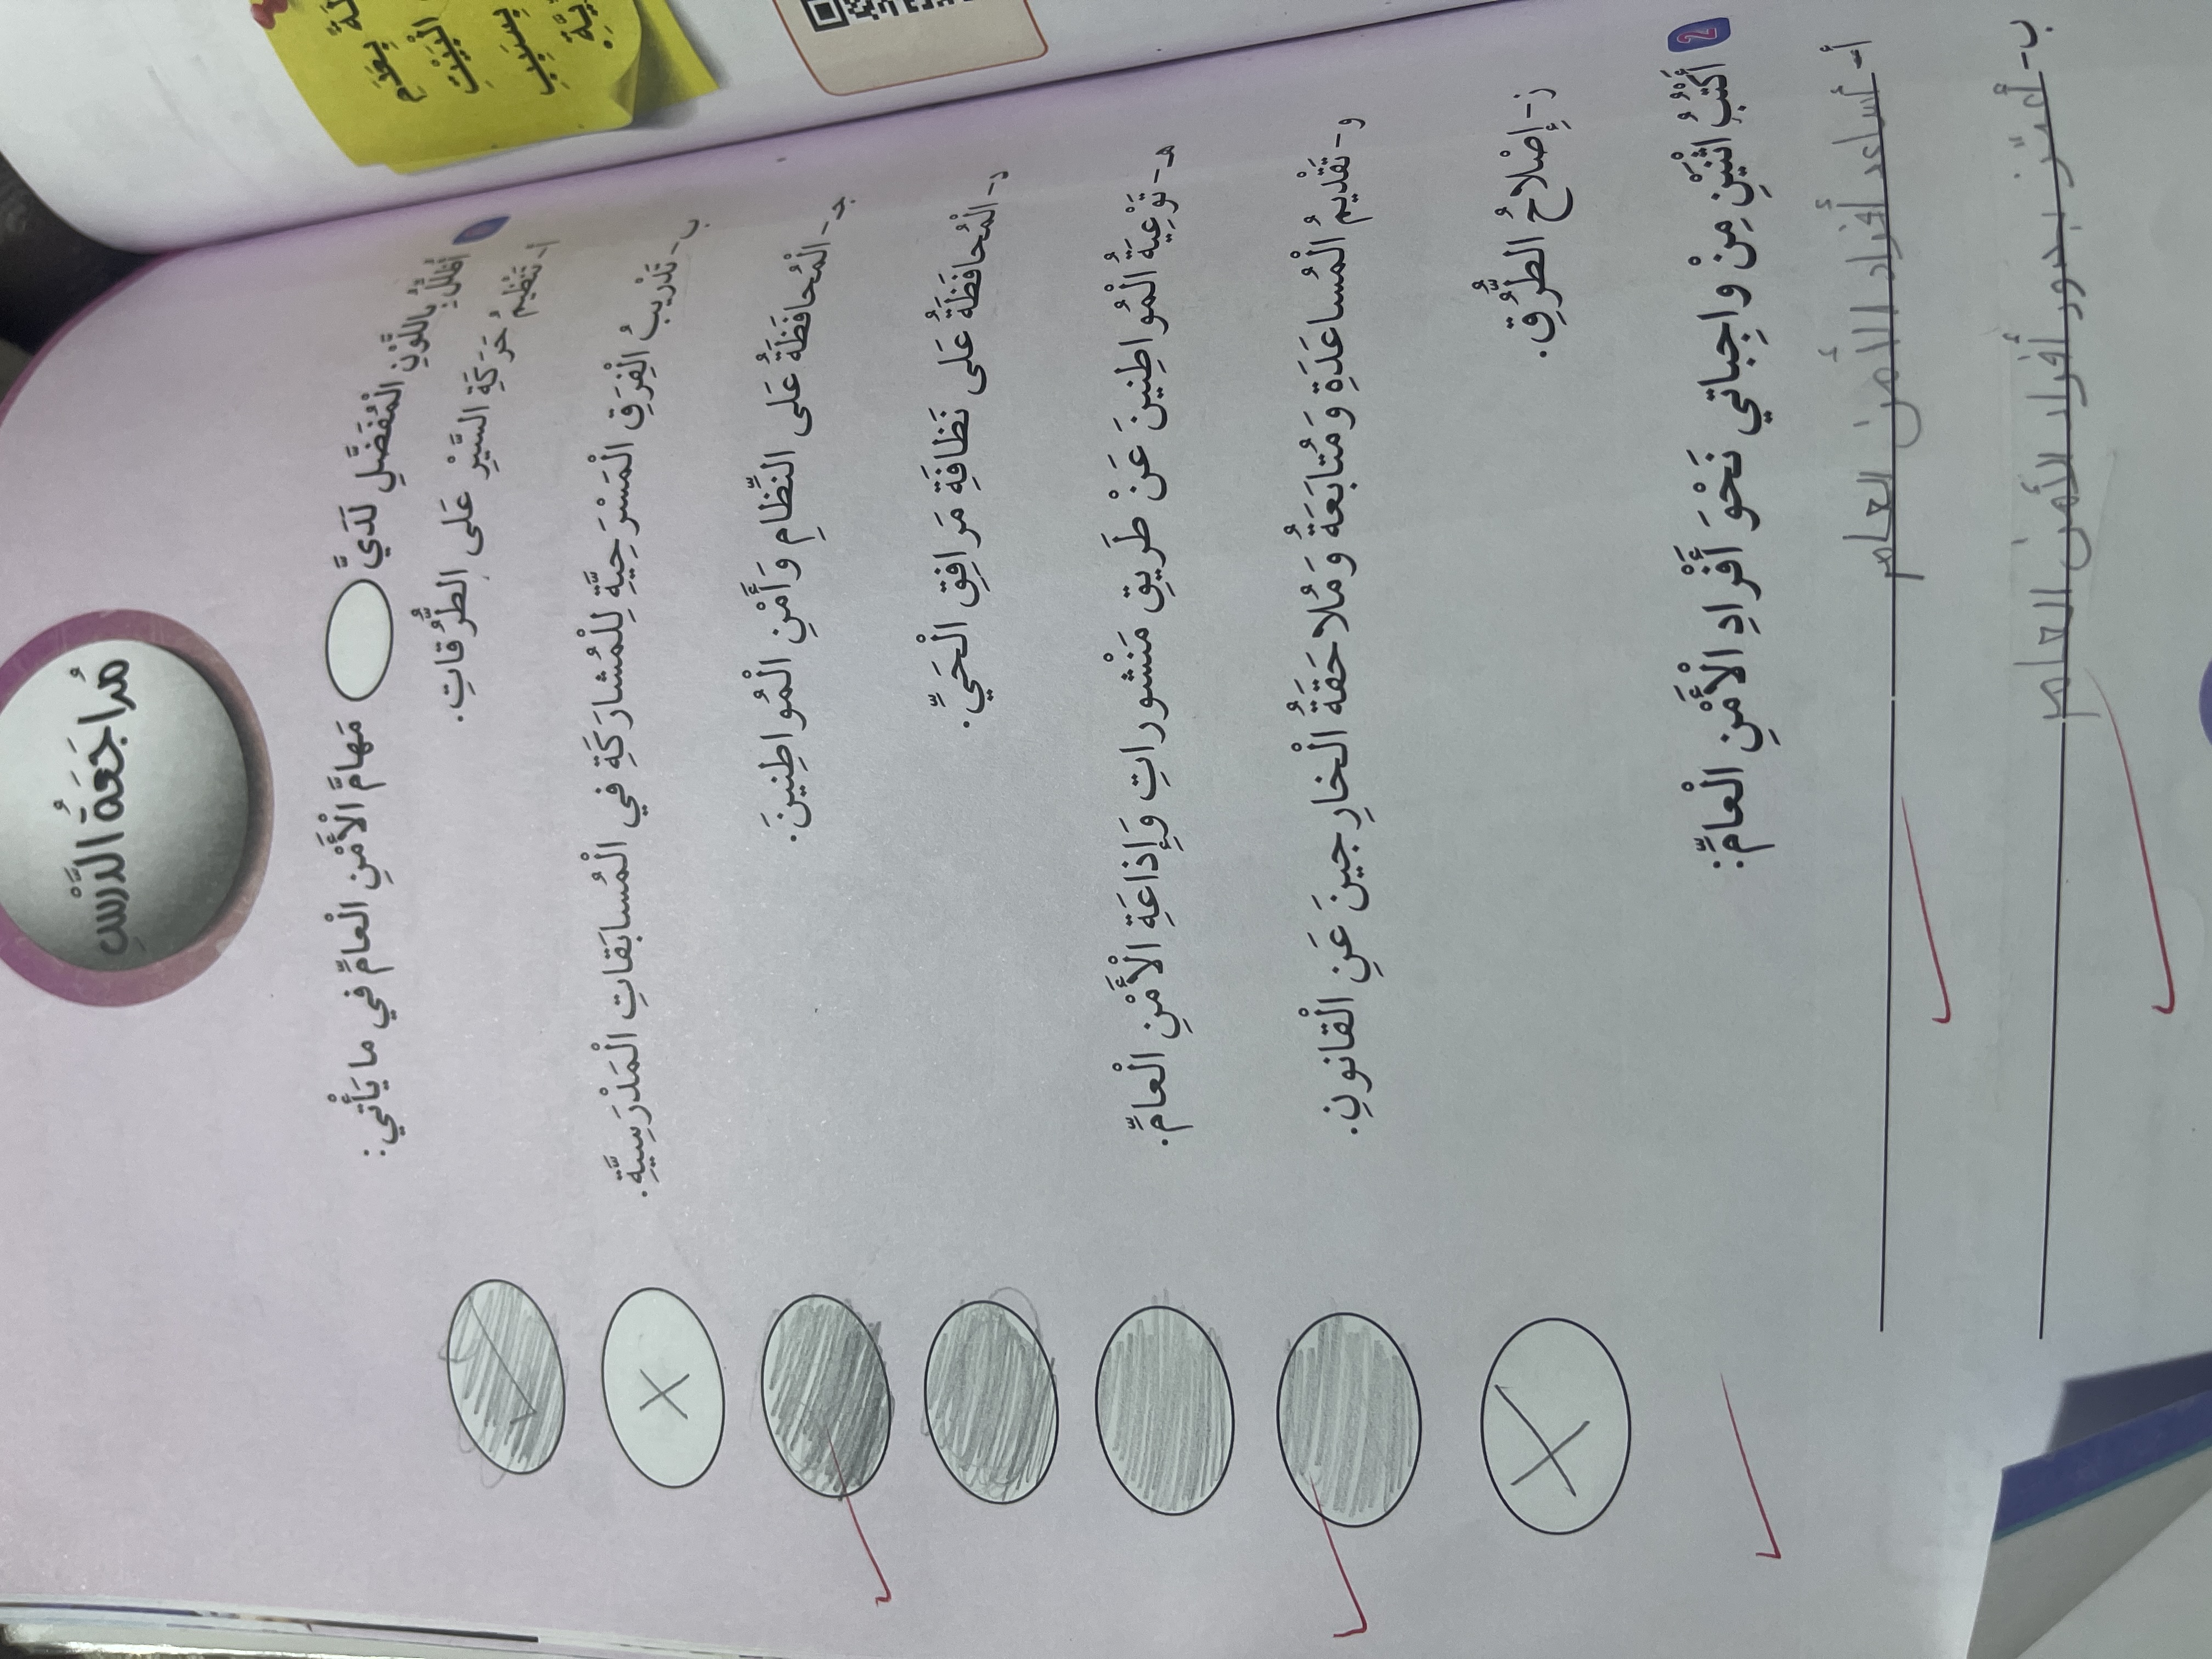 مُراجَعَةُ الدَّرْسِ
1 أُظَلِّلُ بِاللَّوْنِ الْمُفَضَّلِ لَدَيَّ مَهامَّ الْأَمْنِ الْعامِّ في ما يَأْتي:
أ- تَنْظيمُ حَرَكَةِ السَّيْرِ عَلى الطُّرُقاتِ.
ب- تَدْريبُ الْفِرَقِ الْمَسْرَحِيَّةِ لِلْمُشارَكَةِ في الْمُسابَقاتِ الْمَدْرَسِيَّةِ.
جـ- الْمُحافَظَةُ عَلى النِّظامِ وَأَمْنِ الْمُواطِنينَ.
د- الْمُحافَظَةُ عَلى نَظافَةِ مَرافِقِ الْحَيِّ.
هـ- تَوْعِيَةُ الْمُواطِنينَ عَنْ طَريقِ مَنْشوراتِ وَإِذاعَةِ الْأَمْنِ الْعامِّ.
و- تَقْديمُ الْمُساعَدَةِ وَمُتابَعَةُ وَمُلاحَقَةُ الْخارِجينَ عَنِ الْقانونِ.
ز- إِصْلاحُ الطُّرُقِ.
2 أَكْتُبُ اثْنَيْنِ مِنْ واجِباتي نَحْوَ أَفْرادِ الْأَمْنِ الْعامِّ:
أ- أساعد أفراد الأمن العام
ب- أعتز بدور أفراد الأمن العام
لَةً
بِعَدَمِ
الْبَيْتِ
بِسَبَبِ